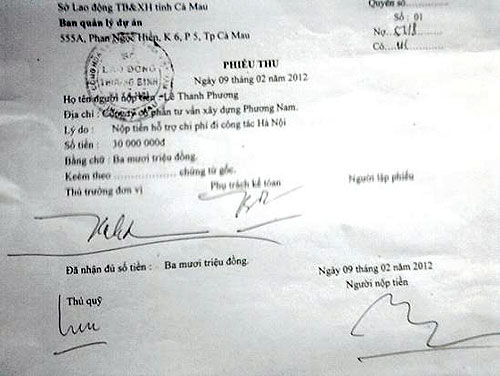 Sở Lao động TB&XH tỉnh Cà Mau
Ban quản lý dự án
555A, Phan Ngọc Hiển, K 6, P 5, Tp Cà Mau
Quyển số
Số : 01
Nợ
Có
PHIẾU THU
Ngày 09 tháng 02 năm 2012
LAO ĐỘNG
THƯƠNG BINH
Họ tên người nộp tiền : Lê Thanh Phương
Địa chỉ : Công ty cổ phần tư vấn xây dựng Phương Nam.
Lý do : Nộp tiền hỗ trợ chi phí đi công tác Hà Nội
Số tiền : 30 000 000đ
Bằng chữ : Ba mươi triệu đồng.
Keèm theo ................... chứng từ gốc.
Thủ trưởng đơn vị Phụ trách kế tóan Người lập phiếu
Đã nhận đủ số tiền : Ba mươi triệu đồng.
Ngày 09 tháng 02 năm 2012
Thủ quỹ Người nộp tiền